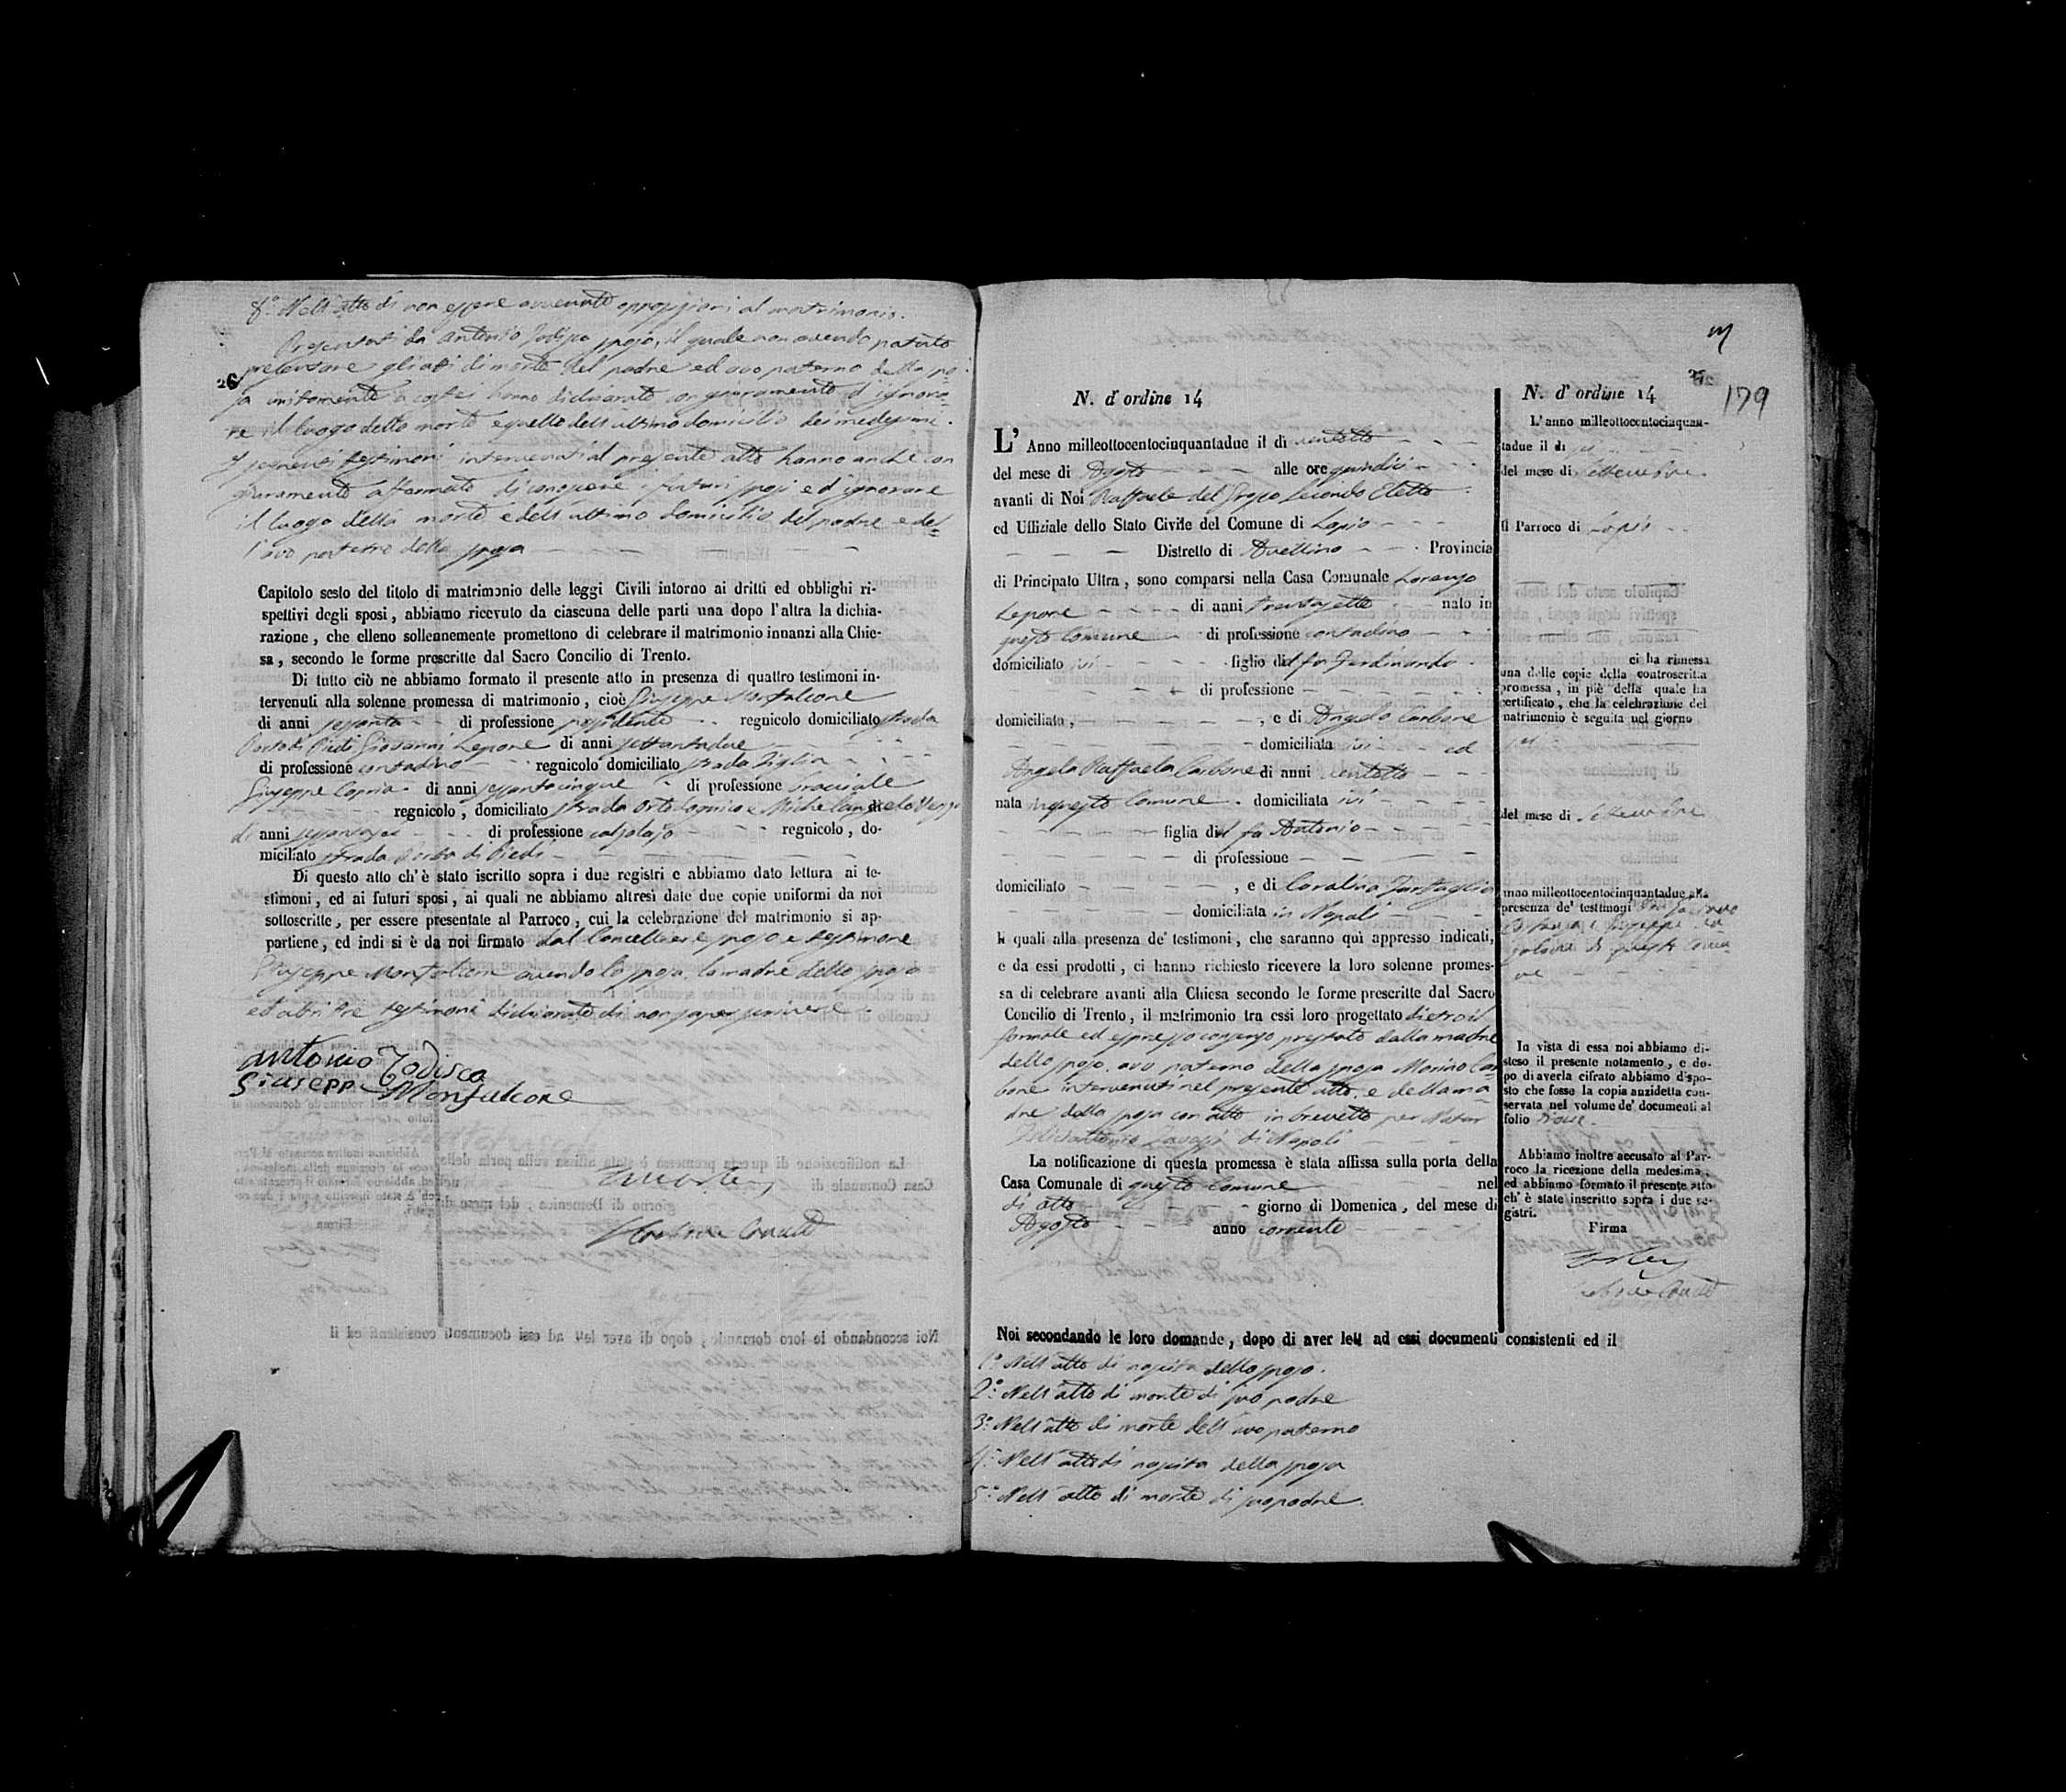 8.° Nell'atto di non essere avvenute opposizioni al matrimonio.
Presentati da Antonio Todisco sposo, il quale non avendo potuto
26
presentare gli atti di morte del padre ed avo paterno della spo-
sa unitamente a costei hanno dichiarato con giuramento d'ignora-
re il luogo della morte e quello dell'ultimo domicilio dei medesimi.
I testimoni intervenuti al presente atto hanno anche con
giuramento affermato di conoscere i futuri sposi ed ignorare
il luogo della morte e dell'ultimo domicilio del padre e del-
l'avo paterno della sposa
Capitolo sesto del titolo di matrimonio delle leggi Civili intorno ai dritti ed obblighi ri-
spettivi degli sposi, abbiamo ricevuto da ciascuna delle parti una dopo l'altra la dichia-
razione, che elleno sollennemente promettono di celebrare il matrimonio innanzi alla Chie-
sa, secondo le forme prescritte dal Sacro Concilio di Trento.
Di tutto ciò ne abbiamo formato il presente atto in presenza di quattro testimoni in-
tervenuti alla solenne promessa di matrimonio, cioè Giuseppe Monfalcone
di anni sessanta di professione possidente regnicolo domiciliato strada
Porta di Piedi Giovanni Lepone di anni settantadue
di professione contadino regnicolo domiciliato strada
Giuseppe Capria di anni sessantacinque di professione bracciale
regnicolo, domiciliato strada Michelangelo
di anni di professione calzolajo regnicolo, do-
miciliato strada Porta di Piedi
Di questo atto ch'è stato iscritto sopra i due registri e abbiamo dato lettura ai te-
stimoni, ed ai futuri sposi, ai quali ne abbiamo altresì date due copie uniformi da noi
sottoscritte, per essere presentate al Parroco, cui la celebrazione del matrimonio si ap-
partiene, ed indi si è da noi firmato dal Cancelliere sposo e testimone
Giuseppe Monfalcone avendo la sposa, la madre dello sposo
ed altri tre testimoni dichiarato di non saper scrivere.
Antonio Todisco
Giuseppe Monfalcone
179
N. d'ordine 14
L'Anno milleottocentocinquantadue il dì ventotto
del mese di Agosto alle ore quindici
avanti di Noi Raffaele del Grosso Secondo Eletto
ed Uffiziale dello Stato Civile del Comune di Lapio
Distretto di Avellino Provincia
di Principato Ultra, sono comparsi nella Casa Comunale Lorenzo
Lepone di anni trentasette nato in
questo Comune di professione contadino
domiciliato ivi figlio del fu Ferdinando
di professione
domiciliato, , e di Angela Carbone
domiciliata ivi ed
Angela Raffaela Carbone di anni ventotto
nata in questo Comune domiciliata ivi
figlia del fu Antonio
di professione
domiciliato , e di Carolina Tartaglia
domiciliata in Napoli
li quali alla presenza de' testimoni, che saranno qui appresso indicati,
e da essi prodotti, ci hanno richiesto ricevere la loro solenne promes-
sa di celebrare avanti alla Chiesa secondo le forme prescritte dal Sacro
Concilio di Trento, il matrimonio tra essi loro progettato dietro il
formale ed espresso consenso prestato dalla madre
dello sposo, avo paterno della sposa Marino Car-
bone intervenuti nel presente atto, e della ma-
dre della sposa con atto in brevetto per Notar
di Napoli
La notificazione di questa promessa è stata affissa sulla porta della
Casa Comunale di questo Comune nel
dì otto giorno di Domenica, del mese di
Agosto anno corrente
Noi secondando le loro domande, dopo di aver letti ad essi documenti consistenti ed il
1.° Nell'atto di nascita dello sposo.
2.° Nell'atto di morte di suo padre
3.° Nell'atto di morte dell'avo paterno
4.° Nell'atto di nascita della sposa
5.° Nell'atto di morte di suo padre.
N. d'ordine 14
L'anno milleottocentocinquan-
tadue il dì
del mese di Settembre
il Parroco di Lapio
ci ha rimessa
una delle copie della controscritta
promessa, in piè della quale ha
certificato, che la celebrazione del
matrimonio è seguita nel giorno
del mese di Settembre
anno milleottocentocinquantadue alla
presenza de' testimoni
Giuseppe
di questo Comu-
ne
In vista di essa noi abbiamo di-
steso il presente notamento, e do-
po di averla cifrato abbiamo dispo-
sto che fosse la copia anzidetta con-
servata nel volume de' documenti al
folio nove.
Abbiamo inoltre accusato al Par-
roco la ricezione della medesima,
ed abbiamo formato il presente atto
ch'è stato inscritto sopra i due re-
gistri.
Firma